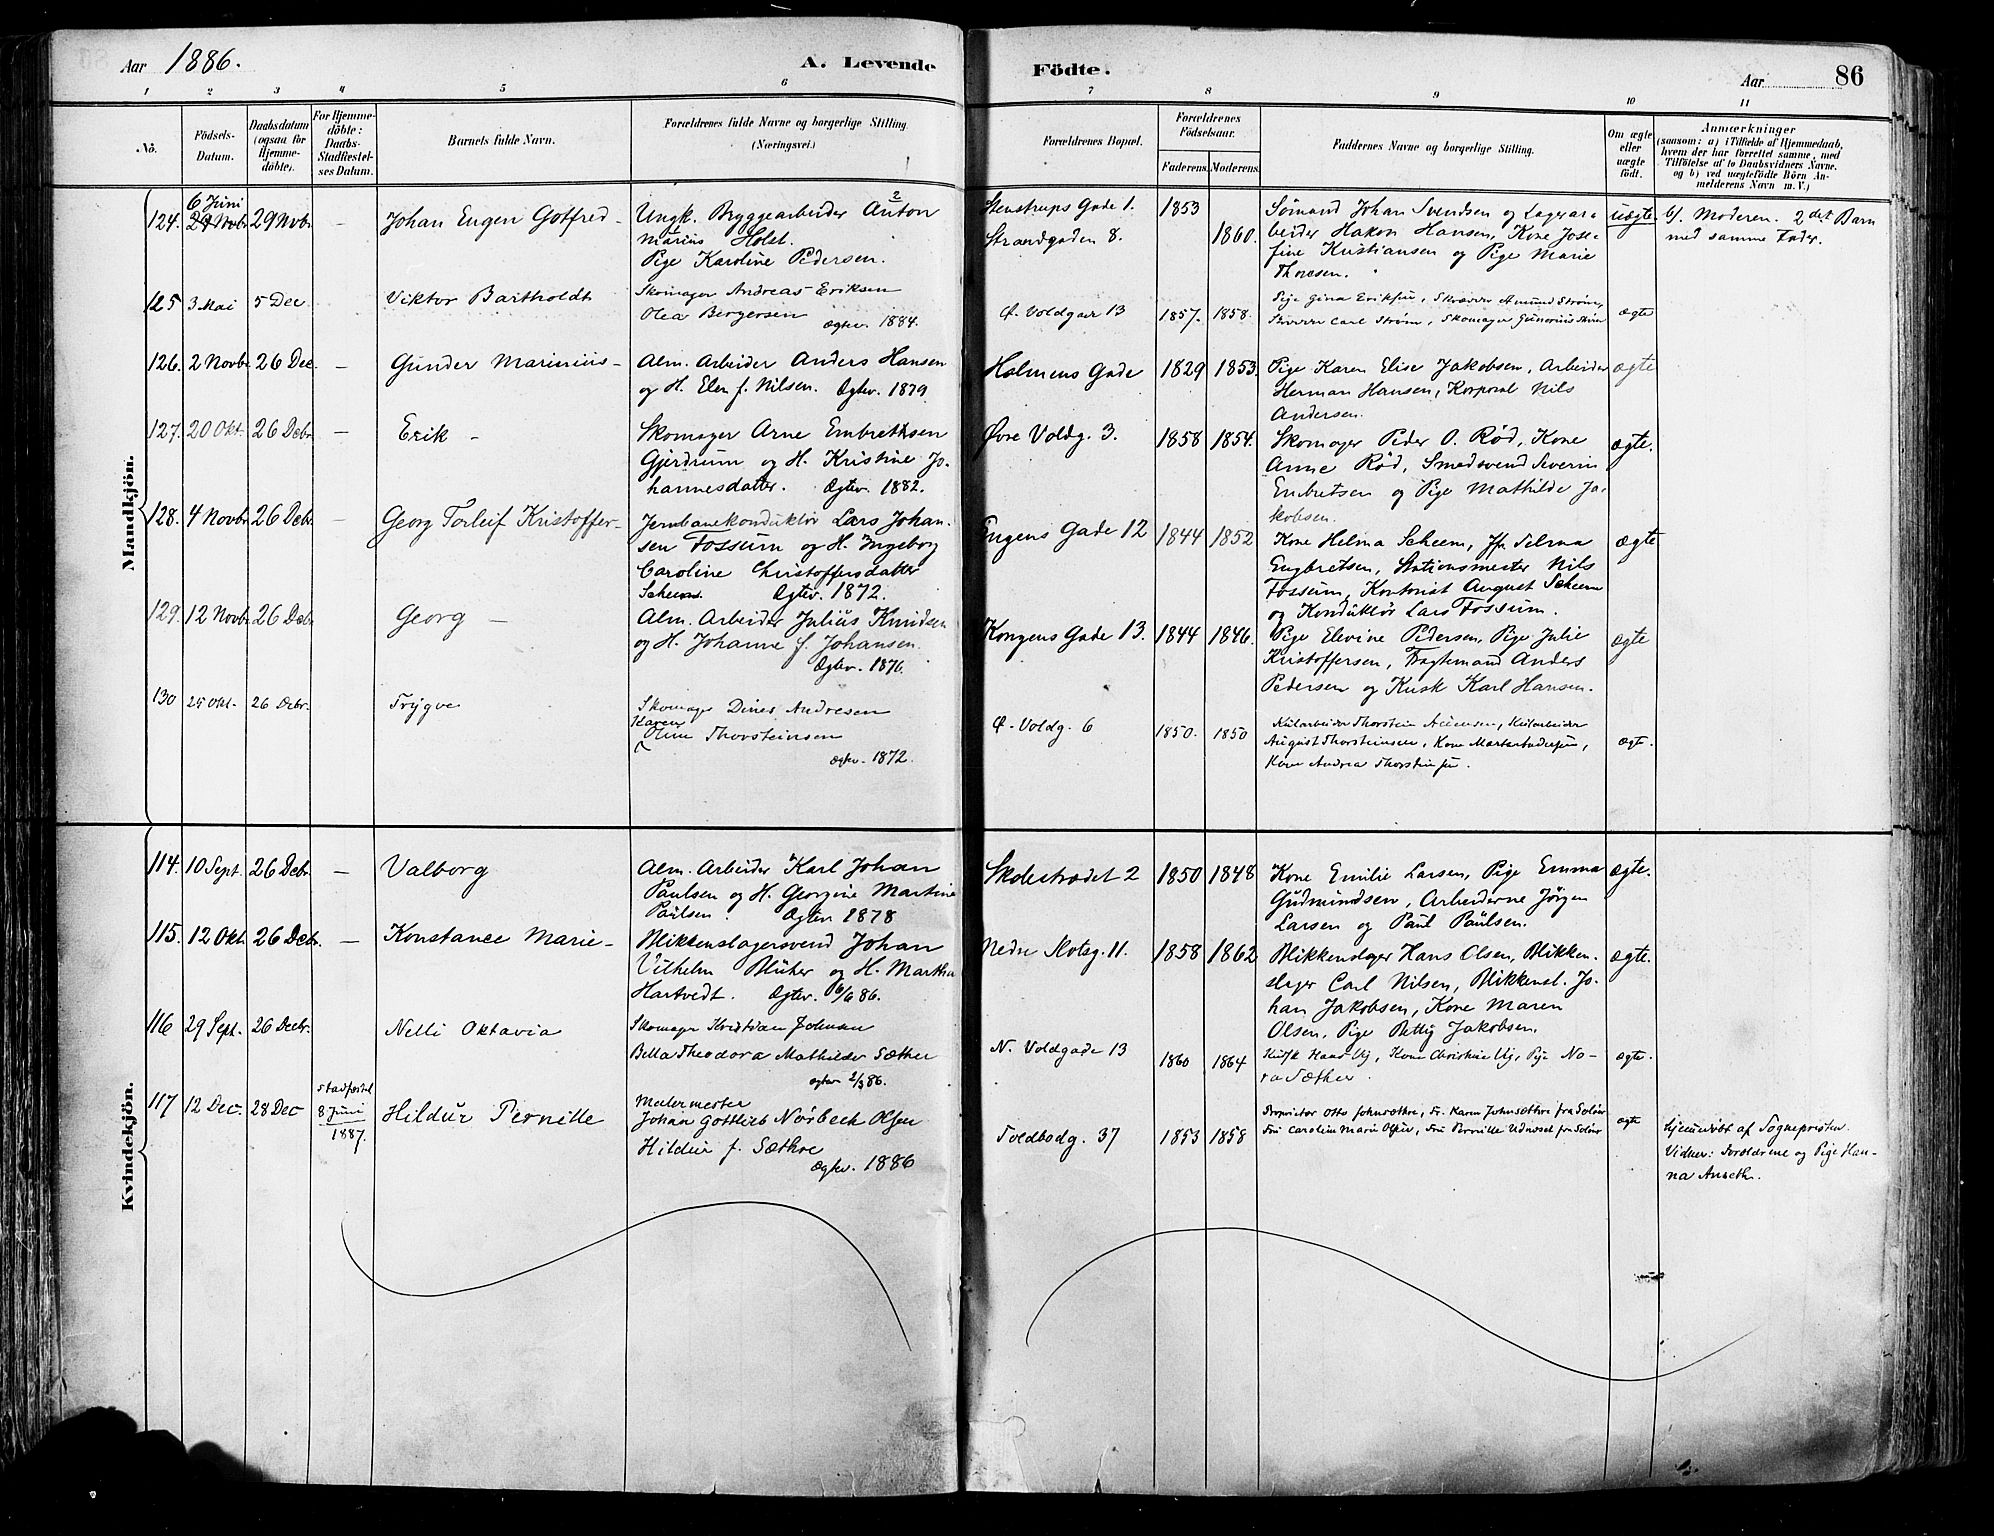 Aar 1886. A. Levende Födte. Aar 86
1 2 3 4 5 6 7 8 9 10 11
No. Födsels-Datum. Daabsdatum (ogsaa for Hjemme-döbte). For Hjemme-döbte: Daabs-Stadfæstel-ses Datum. Barnets fulde Navn. Forældrenes fulde Navne og borgerlige Stilling. (Næringsvei.) Forældrenes Bopæl. Forældrenes Födselsaar. Faderens. Moderens. Faddernes Navne og borgerlige Stilling. Om ægte eller uægte födt. Anmærkninger (saasom: a) i Tilfælde af Hjemmedaab, hvem der har forrettet samme, med Tilföielse af to Daabsvidners Navne, og b) ved uægtefödte Börn An-melderens Navn m. V.)
Mandkjön.
124. 6 Juni 29 Novbr. 29 Novbr. – Johan Eugen Gotfred – Ungk. Bryggearbeider Anton 2 Stenstrups Gade 1. 1853 Sømand Johan Svendsen og Lagerar- uægte b/. Moderen. 2det Barn
Marius Holst. Strandgaden 8. 1860. beider Hakon Hansen, Kone Jose- med samme Fader.
Pige Karoline Pedersen. fine Kristiansen og Pige Marie
Thoresen.
125 3 Mai 5 Dec Viktor Bartholdt Skomager Andreas Eriksen Ø. Voldgade 13 1857. 1858. Pige Gina Eriksen, Skrædder Amund Strøm, ægte
Olea Bergersen Carl Strøm, Skomager
Ægtev. 1884.
126. 2 Novbr. 26 Dec. – Gunder Marinius – Alm. Arbeider Anders Hansen Holmens Gade 1829 1853. Pige Karen Elise Jakobsen, Arbeider ægte
og H. Elen f. Nilsen. Ægtev. 1879 Herman Hansen, Korporal Nils
Andersen.
127. 20 Okt. 26 Debr. – Erik – Skomager Arne Embrethsen Øvre Voldg. 3. 1858 1854. Skomager Peder O. Rød, Kone ægte.
Gjerdrum og H. Kristine Jo- Anne Rød, Smedsvend Severin
hannesdatter. Ægtev. 1882. Embretsen og Pige Mathilde Ja-
kobsen.
128. 4 Novbr. 26 Debr. – Georg Torleif Kristoffer – Jernbanekonduktør Lars Johan- Eugens Gade 12 1844 1852 Kone Helma Scheen, Jfr Selma ægte
sen Fossum og H. Ingeborg Engbretsen, Stationsmester Nils
Caroline Christoffersdatter Fossum, Kontorist August Scheen
Scheen. Ægtev. 1872. og Konduktør Lars Fossum.
129. 12 Novbr. 26 Debr. Georg – Alm. Arbeider Julius Knudsen Kongens Gade 13. 1844 1846. Pige Elevine Pedersen, Pige Julie ægte
og H. Johanne f. Johansen. Kristoffersen, Fragtemand Anders
Ægtev. 1876. Pedersen og Kusk Karl Hansen.
130 25 Okt. 26 Debr. Trygve Skomager Dines Andresen Ø. Voldg. 6 1850. 1850 Thorstein ægt.
Karen Oline Thorsteinsen August Thorsteinsen, Kone
Ægtev. 1872. Kone Andrea Thorsteinsen.
Kvindekjön.
114. 10 Sept. 26 Debr. – Valborg Alm. Arbeider Karl Johan Skolestrædet 2 1850 1848 Kone Emilie Larsen, Pige Emma ægte.
Paulsen og H. Georgine Martine Gudmundsen, Arbeiderne Jørgen
Paulsen. Ægtev 1878 Larsen og Paul Paulsen.
115. 12 Okt. 26 Debr. – Konstance Marie – Blikkenslagersvend Johan Nedre Slotsg. 11. 1858 1862 Blikkenslager Hans Olsen, Blikken- ægte.
Vilhelm Blüher og H. Martha slager Carl Nilsen, Blikkensl. Jo-
Hartvedt. Ægtev. 6/6 86. han Jakobsen, Kone Maren
Olsen, Pige Betty Jakobsen.
116 29 Sept. 26 Decbr. Nelli Oktavia Skomager Kristian Johnsen N. Voldgade 13 1860 1864 Kusk Hans Vig, Kone Christine Vig, Pige No- ægte.
Bella Theodora Mathilde Sæther ra Sæther.
ægtev 2/3 86.
117 12 Dec. 28 Dec stadfæstet 8 Juni 1887. Hildur Pernille Malermester Toldbodg. 37 1853 1858 Proprietær Otto Johnsæthre, Fr. Karen Johnsæthre fra Solør ægte hjemmedøbt af Sognepresten.
Johan Gottlieb Norbech Olsen Fru Caroline Marie Olsen, Fru Pernille Udnæset fra Solør Vidner: Forældrene og Pige Han-
Hildur f. Sæthre na Anseth.
Ægtev. 1886